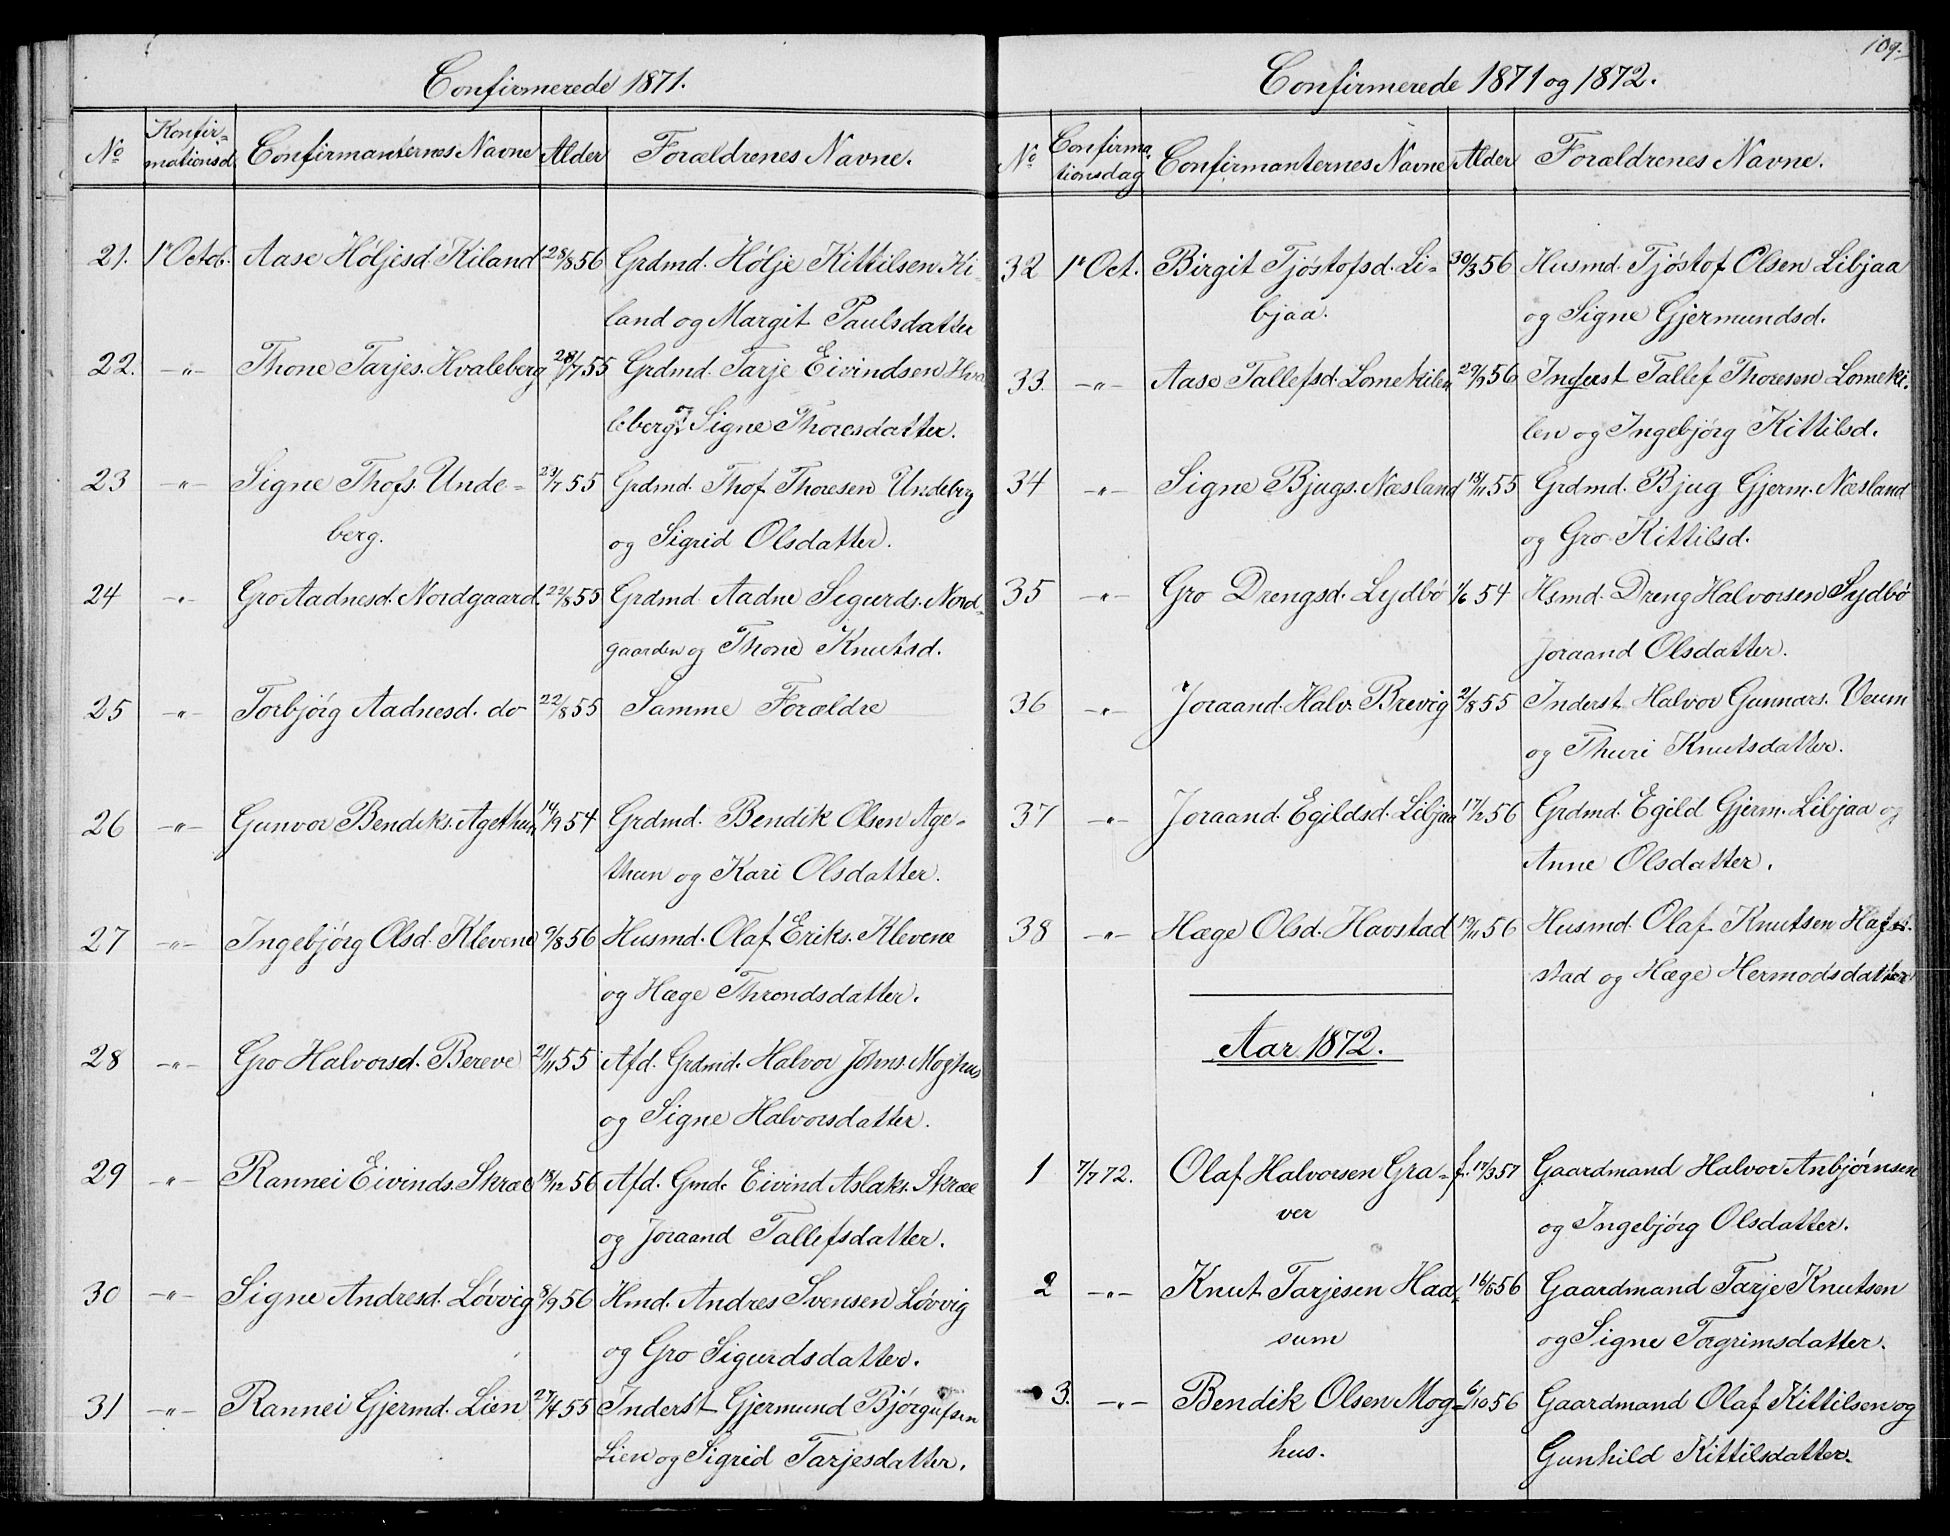 Confirmerede 1871.
No Konfir= Confirmanternes Navne Alder Forældrenes Navne.
mationsd.
21. 1e Octob. Aase Höljesd. Kiland 28/8 56 Grdmd. Hölje Kittilsen Ki-
land og Margit Paulsdatter
22. -"- Thone Tarjes. Hvaleberg 28/7 55 Grdmd. Tarje Eivindsen Hva
leberg og Signe Thoresdatter.
23 -"- Signe Thofs. Unde- 23/7 55 Grdmd. Thof Thoresen Undeberg
berg. og Sigrid Olsdatter.
24 " Gro Aadnesd. Nordgaard. 22/8 55 Grdmd. Aadne Sigurds. Nord-
gaarden og Thone Knutsd.
25 -"- Torbjörg Aadnesd. do 22/8 55 Samme Forældre
26 -"- Gunvor Bendiks. Agethun 14/9 54 Grdmd. Bendik Olsen Age-
thun og Kari Olsdatter.
27 -"- Ingebjörg Olsd. Klevene 9/8 56 Husmd. Olaf Eriks. Klevene
og Hæge Throndsdatter.
28 -"- Gro Halvorsd. Bereve 21/11 55 Afd. Grdmd. Halvor Johns. Moghus
og Signe Halvorsdatter.
29 -"- Rannei Eivinds. Skræe 18/12 56 Afd. Gmd. Eivind Aslaks. Skræe
og Joraand Tallefsdatter.
30 -"- Signe Andresd. Lövvig 8/9 56 Hmd. Andres Svensen Lövvig
og Gro Sigurdsdatter.
31 -"- Rannei Gjermd. Lien 27/4 55 Inderst Gjermund Bjørgufsen
Lien og Sigrid Tarjesdatter.
109.
Confirmerede 1871 og 1872.
No Confirma. Confirmanternes Navne Alder Forældrenes Navne.
tionsdag
32 1e Oct. Birgit Tjöstofsd. Li- 30/3 56 Husmd. Tjöstof Olsen Libjaa
bjaa. og Signe Gjermundsd.
33. -"- Aase Tallefsd. Lomekilen 29/9 56 Inderst Tallef Thoresen Lomeki.
len og Ingebjörg Kittilsd.
34 -"- Signe Bjugs. Næsland 18/11 55 Grdmd. Bjug Gjerm. Næsland
og Gro Kittilsd.
35 -"- Gro Drengsd. Lydbö 1/6 54 Hsmd. Dreng Halvorsen Lydbö
Joraand Olsdatter.
36 -"- Joraand. Halv. Brevig 2/8 55 Inderst Halvor Gunnars. Veum
og Thuri Knutsdatter.
37 -"- Joraand. Egildsd. Libjaa 17/2 56 Grdmd. Egild Gjerm. Libjaa og
Anne Olsdatter.
38 -"- Hæge Olsd. Havstad 19/11 56 Husmd. Olaf Knutsen Haf
stad og Hæge Hermodsdatter
Aar 1872.
1 7/7 72. Olaf Halvorsen Gra- f. 17/3 57 Gaardmand Halvor Anbjørnsen
ver og Ingebjörg Olsdatter.
2 -"- Knut Tarjesen Haa- 16/8 56 Gaardmand Tarje Knutsen
sum og Signe Tægrimsdatter.
3. -"- Bendik Olsen Mog- 6/10 56 Gaardmand Olaf Kittilsen og
hus. Gunhild Kittilsdatter.